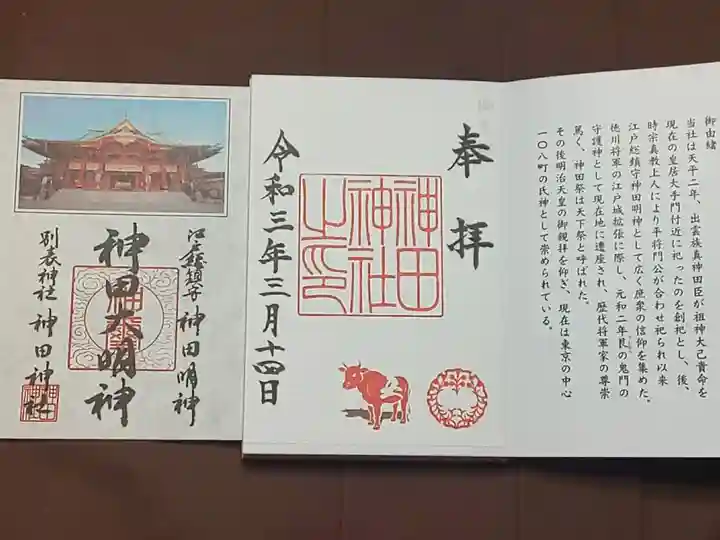 御由緒
当社は天平二年、出雲族真神田臣が祖神大己貴命を
現在の皇居大手門付近に祀ったのを創祀とし、後、
時宗真教上人により平将門公が合わせ祀られ以来
江戸総鎮守神田明神として広く庶衆の信仰を集めた。
徳川将軍の江戸城拡張に際し、元和二年艮の鬼門の
守護神として現在地に遷座され、歴代将軍家の尊崇
篤く、神田祭は天下祭と呼ばれた。
その後明治天皇の御親拝を仰ぎ、現在は東京の中心
一〇八町の氏神として崇められている。
奉拝
神田
神社
之印
令和三年三月十四日
江戸総鎮守 神田明神
神田大明神
別表神社 神田神社